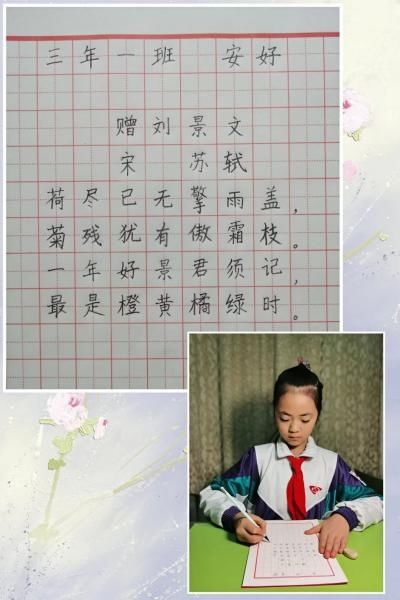 三年一班 安好
赠刘景文
宋 苏轼
荷尽已无擎雨盖，
菊残犹有傲霜枝。
一年好景君须记，
最是橙黄橘绿时。